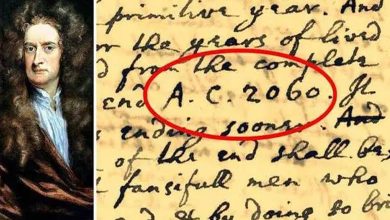 primitive year. And
or the years of lived
d from the complete
end A. C. 2060. It
ending sooner. And
of the end shall be
fansifull men who
by doing so br